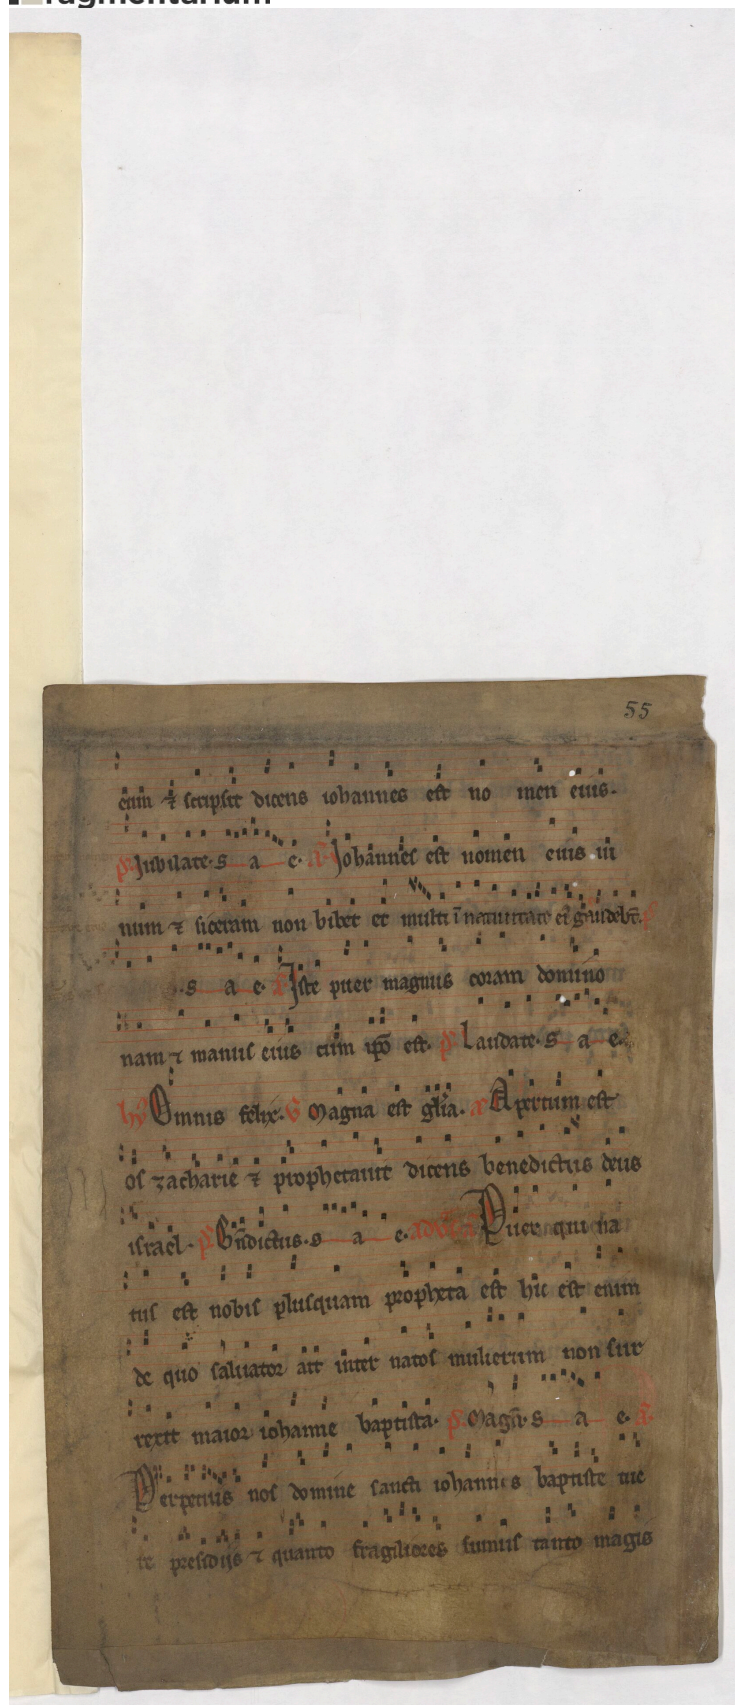 55
eum ⁊ scripsit dicens iohannes est no men eius.
p̄s Iubilate. s a e. Ā Johannes est nomen eius ui
num ⁊ siceram non bibet et multi ī natiuitate ei᷒ gaudebūt. p̄s
s a e. Ā Iste puer magnus coram domino
nam ⁊ manus eius cum ip̄o est. p̄s Laudate. s a e.
hȳ Omnis felix. V Magna est gl̄ia. Ā Apertum est
os zacharie ⁊ prophetauit dicens benedictus deus
israel. p̄s B̄ndictus. s a e. Puer qui na
tus est nobis plusquam propheta est hic est enim
de quo saluator ait inter natos mulierum non sur
rexit maior iohanne baptista. p̄s Magn̄. s a e. Ā
Perpetuis nos domine sancti iohannis baptiste tue
re presidiis ⁊ quanto fragiliores sumus tanto magis